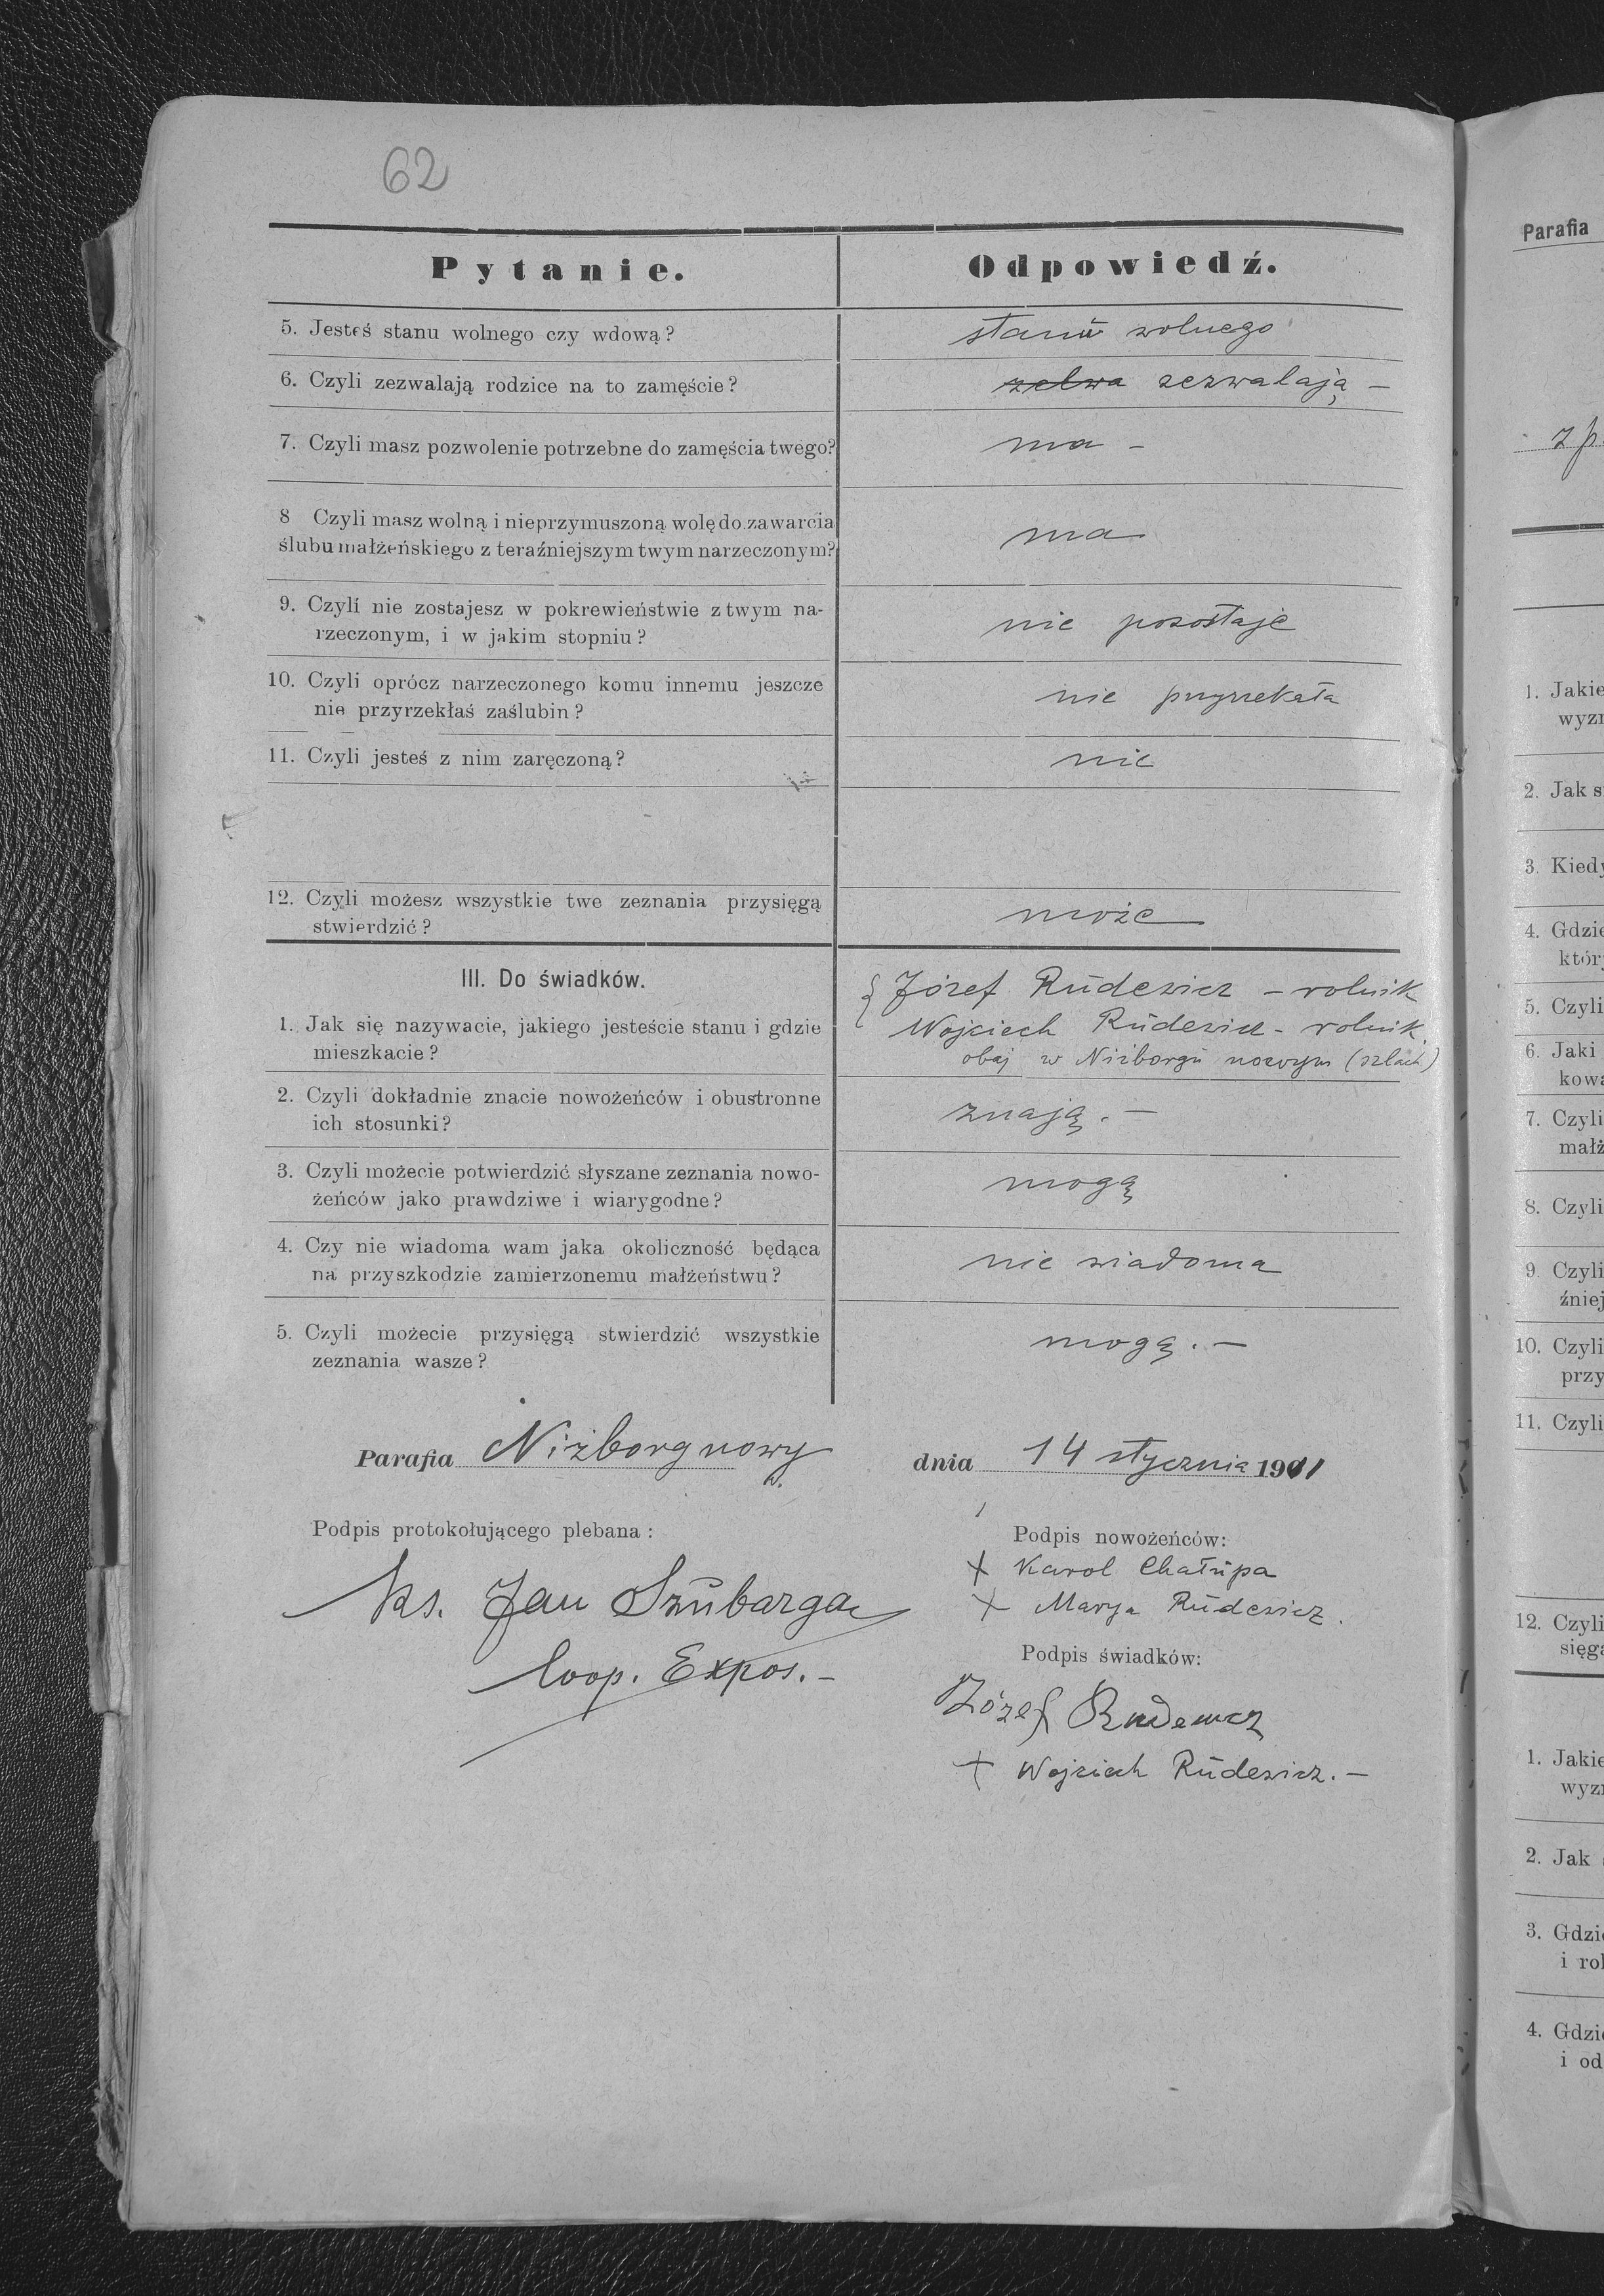 62
Pytanie.
Odpowiedź.
5. Jesteś stanu wolnego czy wdową?
stanu wolnego
6. Czyli zezwalają rodzice na to zamęście?
zelwa zezwalają –
7. Czyli masz pozwolenie potrzebne do zamęścia twego?
ma –
8 Czyli masz wolną i nieprzymuszoną wolę do zawarcia
ślubu małżeńskiego z teraźniejszym twym narzeczonym?
ma
9. Czyli nie zostajesz w pokrewieństwie z twym na-
rzeczonym, i w jakim stopniu?
nie pozostaje
10. Czyli oprócz narzeczonego komu innemu jeszcze
nie przyrzekłaś zaślubin?
nie przyrzekała
11. Czyli jesteś z nim zaręczoną?
nie
12. Czyli możesz wszystkie twe zeznania przysięgą
stwierdzić?
może
III. Do świadków.
1. Jak się nazywacie, jakiego jesteście stanu i gdzie
mieszkacie?
Józef Rudewicz – rolnik
Wojciech Rudewicz – rolnik
obaj w Niżborgu nowym (szlach)
2. Czyli dokładnie znacie nowożeńców i obustronne
ich stosunki?
znają. –
3. Czyli możecie potwierdzić słyszane zeznania nowo-
żeńców jako prawdziwe i wiarygodne?
mogą
4. Czy nie wiadoma wam jaka okoliczność będąca
na przyszkodzie zamierzonemu małżeństwu?
nie wiadoma
5. Czyli możecie przysięgą stwierdzić wszystkie
zeznania wasze?
mogą. –
Parafia Niżborg nowy
dnia 14 stycznia 1911
Podpis protokołującego plebana:
Ks. Jan Szubarga
Coop. Expos. –
Podpis nowożeńców:
+ Karol Chałupa
+ Marya Rudewicz.
Podpis świadków:
Józef Rudewicz
+ Wojciech Rudewicz. –
Parafia
z p
1. Jakie
wyzn
2. Jak s
3. Kiedy
4. Gdzie
któr
5. Czyli
6. Jaki
kowa
7. Czyli
małż
8. Czyli
9. Czyli
źniej
10. Czyli
przy
11. Czyli
12. Czyli
sięga
1. Jakie
wyzn
2. Jak
3. Gdzie
i rok
4. Gdzie
i od